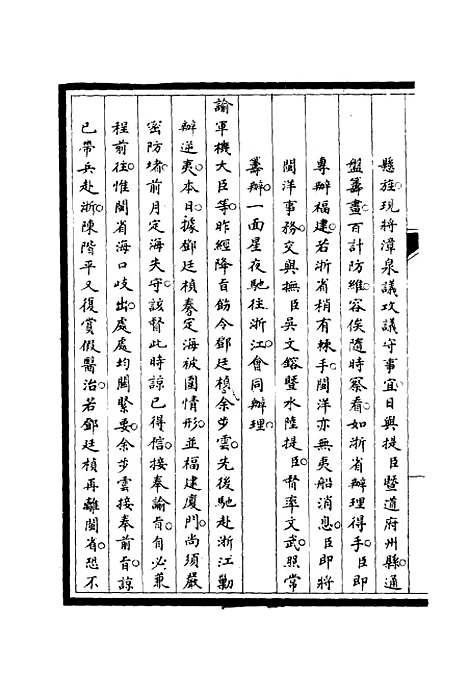 懸旌。現將漳泉議攻議守事宜。日與提臣暨道府州縣。通
盤籌畫。百計防維。容俟隨時察看。如浙省辦理得手。臣即
專辦福建。若浙省稍有棘手。閩洋亦無夷船消息。臣即將
閩洋事務。交與撫臣吳文鎔暨水陸提臣。督率文武。照常
籌辦。一面星夜馳往浙江。會同辦理。
諭軍機大臣等。昨經降旨飭令鄧廷楨。余步雲。先後馳赴浙江勦
辦逆夷。本日。據鄧廷楨奏定海被圍情形。並福建廈門。尚須嚴
密防堵。前月定海失守。該督此時諒已得信。接奉諭旨。自必兼
程前往。惟閩省海口歧出。處處均關緊要。余步雲接奉前旨。諒
已帶兵赴浙。陳階平又復賞假醫治。若鄧廷楨再離閩省。恐不